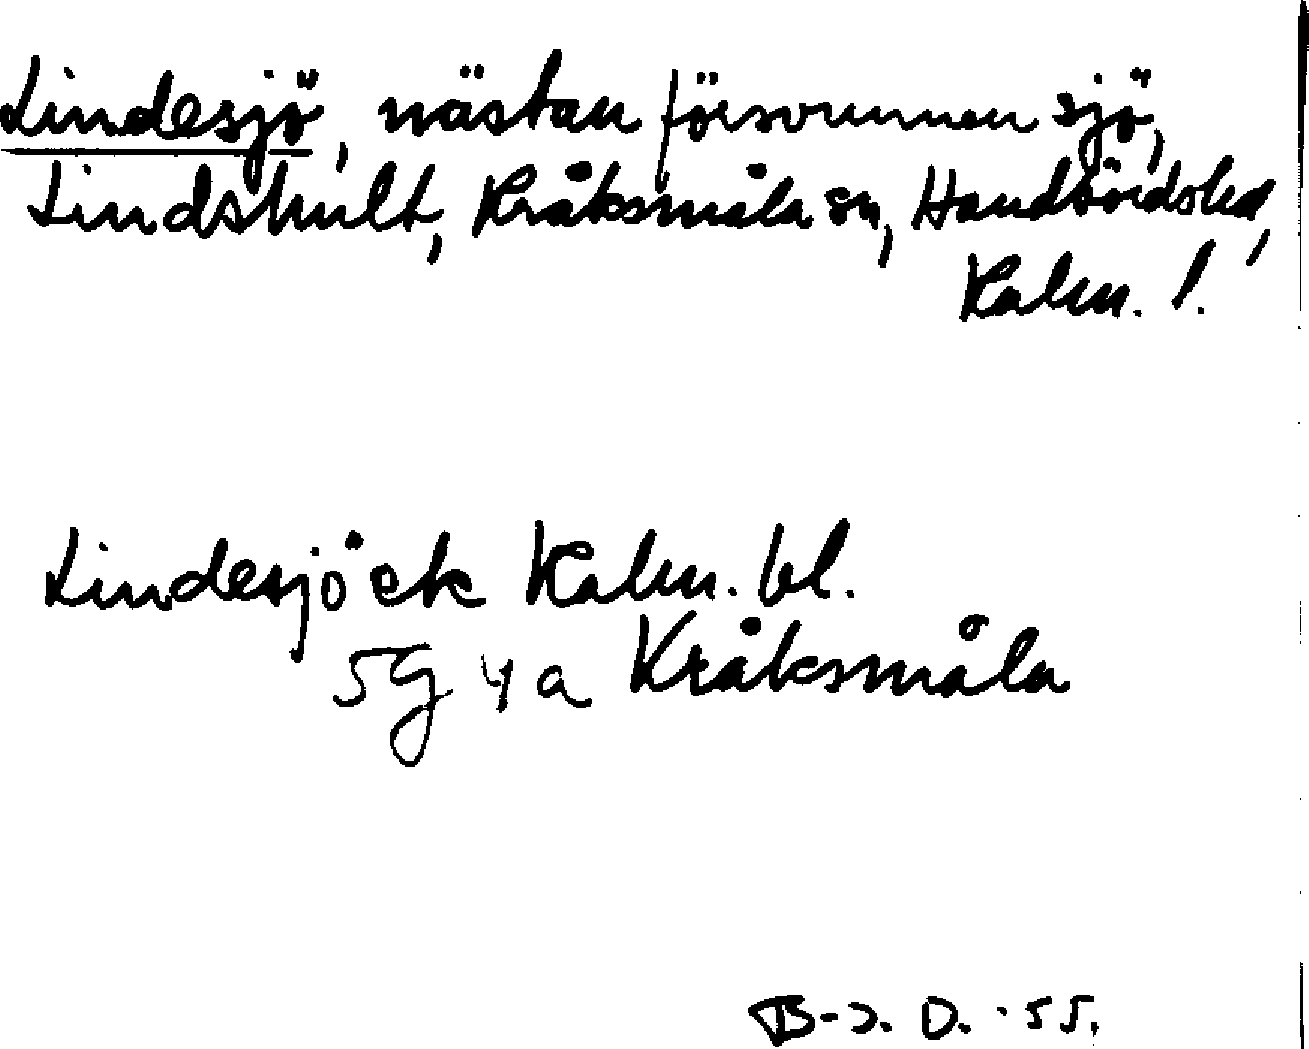 Lindesjö, nästan försvunnen sjö,
Lindshult, Kråksmåla sn, Handbörds hd,
Kalm. l.
Lindesjö ek Kalm. bl.
5G 4a Kråksmåla
B-J. D. -55.